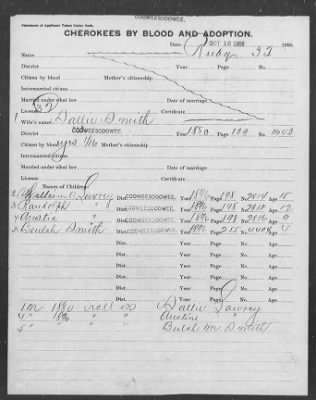 COOWEESCOOWEE.
Statement of Applicant Taken Under Oath.
CHEROKEES BY BLOOD AND ADOPTION.
Date OCT 16 1900 1900.
Name Ruby 33
District Year Page No.
Citizen by blood Mother's citizenship
Intermarried citizen
Married under what law Date of marriage
License Certificate
Wife's name Sallie Smith
District COOWEESCOOWEE. Year 1880 Page 139 No.
Citizen by blood yes 1/16 Mother's citizenship
Intermarried citizen
Married under what law Date of marriage
License Certificate
Names of Children:
William O Lowrey Dist. COOWEESCOOWEE. Year 1896 Page 198 No. 2014 Age 15
Randolph " Dist. COOWEESCOOWEE. Year 1896 Page 198 No. 2015 Age 12
Austin " Dist. COOWEESCOOWEE. Year 1896 Page 198 No. 2016 Age 9
Beulah Smith Dist. COOWEESCOOWEE. Year 1896 Page 255 No. 4408 Age 4
Dist. Year Page No. Age
Dist. Year Page No. Age
Dist. Year Page No. Age
Dist. Year Page No. Age
Dist. Year Page No. Age
Dist. Year Page No. Age
1 on 1880 roll as Sallie Lowrey
4 " 1896 " " Austine "
5 " " " Beulah M Smith